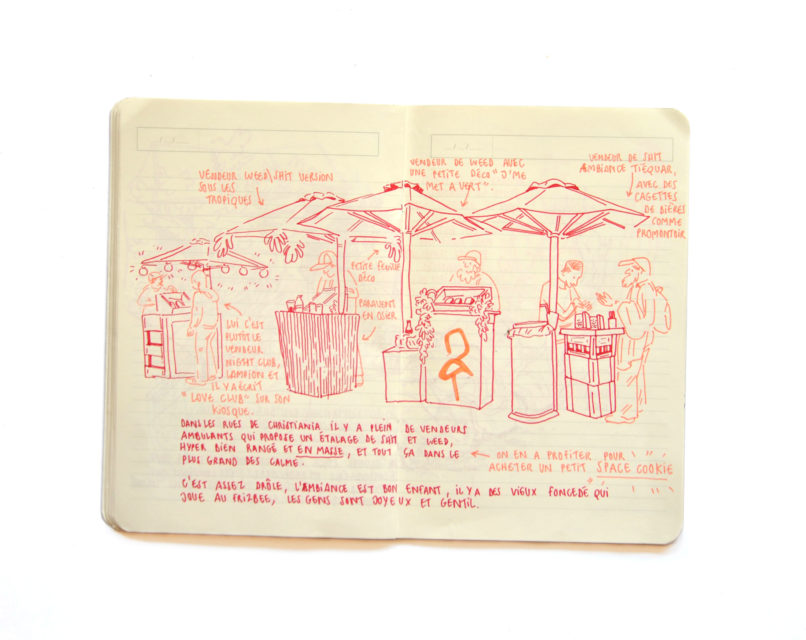 VENDEUR WEED\SHIT VERSION
SOUS LES
TROPIQUES
VENDEUR DE WEED AVEC
UNE PETITE DÉCO "J'ME
MET A VERT".
VENDEUR DE SHIT
AMBIANCE TIÉQUAR,
AVEC DES
CAGETTES
DE BIÈRES
COMME
PROMONTOIR
PETITE FEUILLE
DÉCO
PARAVENT
EN OSIER
LUI C'EST
PLUTÔT LE
VENDEUR
NIGHT CLUB,
LAMPION ET
IL Y A ÉCRIT
"LOVE CLUB" SUR SON
KIOSQUE.
DANS LES RUES DE CHRISTIANIA IL Y A PLEIN DE VENDEURS
AMBULANTS QUI PROPOSE UN ÉTALAGE DE SHIT ET WEED,
HYPER BIEN RANGÉ ET EN MASSE, ET TOUT ÇA DANS LE
PLUS GRAND DES CALME.
ON EN A PROFITER POUR
ACHETER UN PETIT SPACE COOKIE
C'EST ASSEZ DRÔLE, L'AMBIANCE EST BON ENFANT, IL Y A DES VIEUX FONCEDÉ QUI
JOUE AU FRIZBEE, LES GENS SONT JOYEUX ET GENTIL.